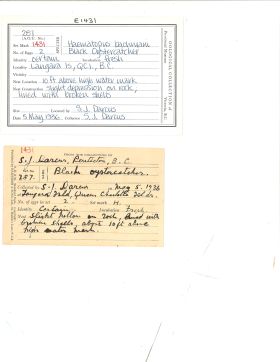 E1431
281
(A.O.U. No.)
Haematopus bachmani
Set Mark 1431
Black Oystercatcher
No. of Eggs 2
Identity certain Incubation fresh
Locality Langara Is, Q.C.I., B.C.
Vicinity
Nest Location 10ft above high water mark
Nest Construction slight depression on rock,
lined with broken shells
Located by S.J. Darcus
Date 5 May 1936 Collector S.J. Darcus
OOLOGICAL COLLECTION of the
Provincial Museum
Victoria B.C.
1431
S.J. Darcus, Penticton, B.C.
287. Black oystercatcher.
Collected by S.J. Darcus on May 5. 1936
No. of eggs in set 2. Set mark
Identity Certain. Incubation Fresh
Nest Slight hollow on rock, lined with
broken shells, about 10ft above
high water mark.